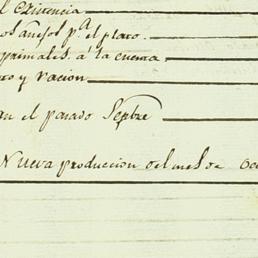 Existencia
os anejos p.ª el plato.
animales á la cuenta
to y racion
an el pasado Sepbre
Nueva produccion del mes de Oc